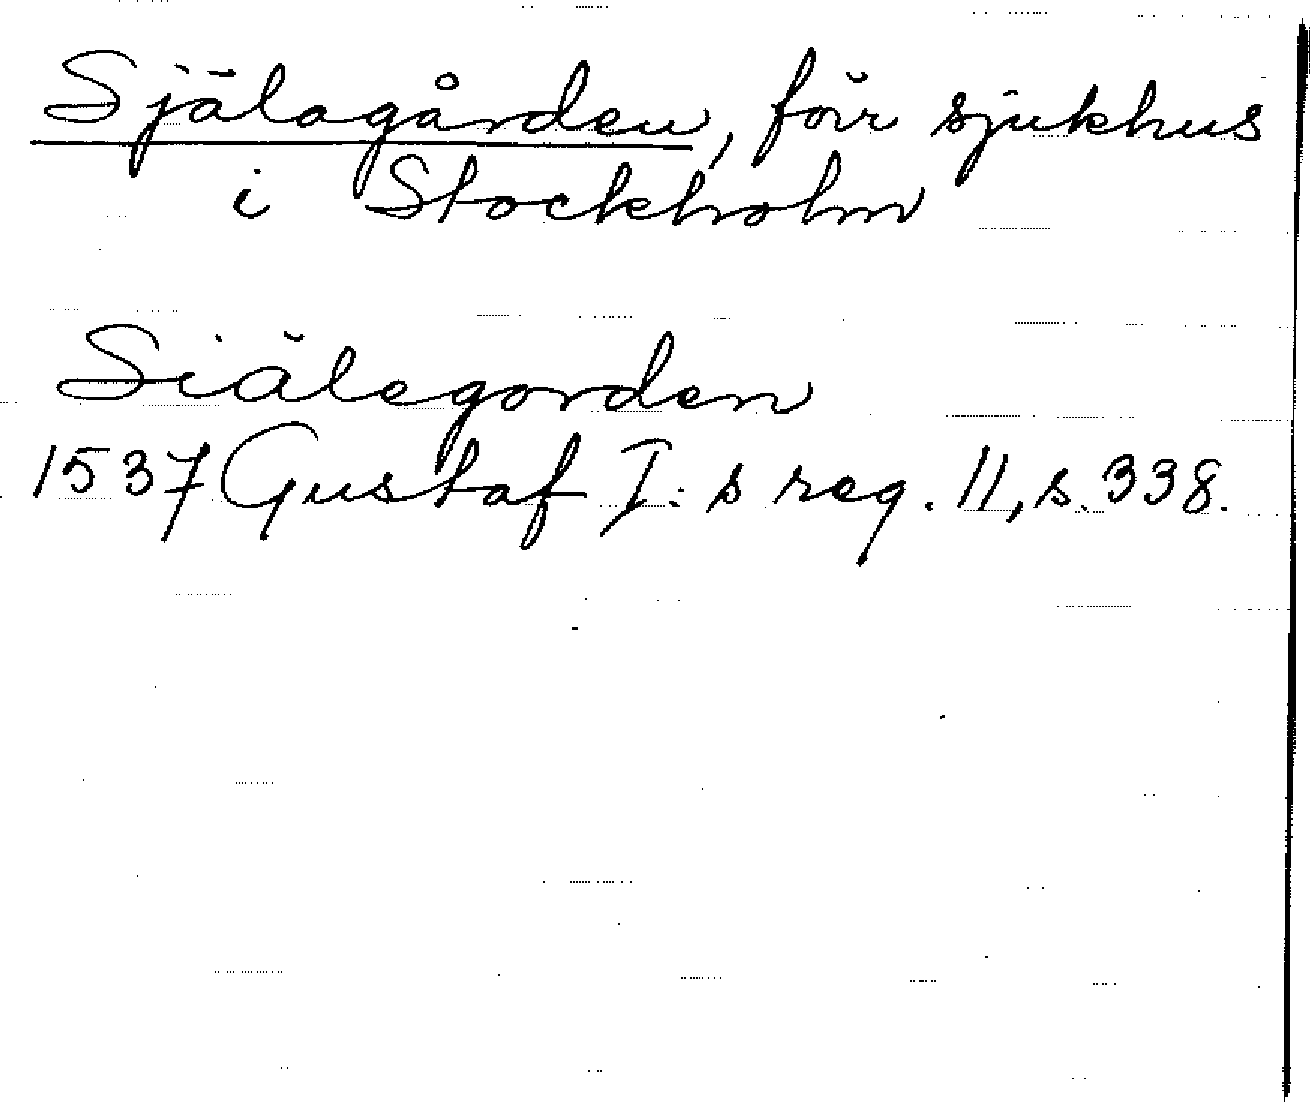 Själagården, förr sjukhus
i Stockholm
Siälegorden
1537 Gustaf I:s reg. 11, s. 338.